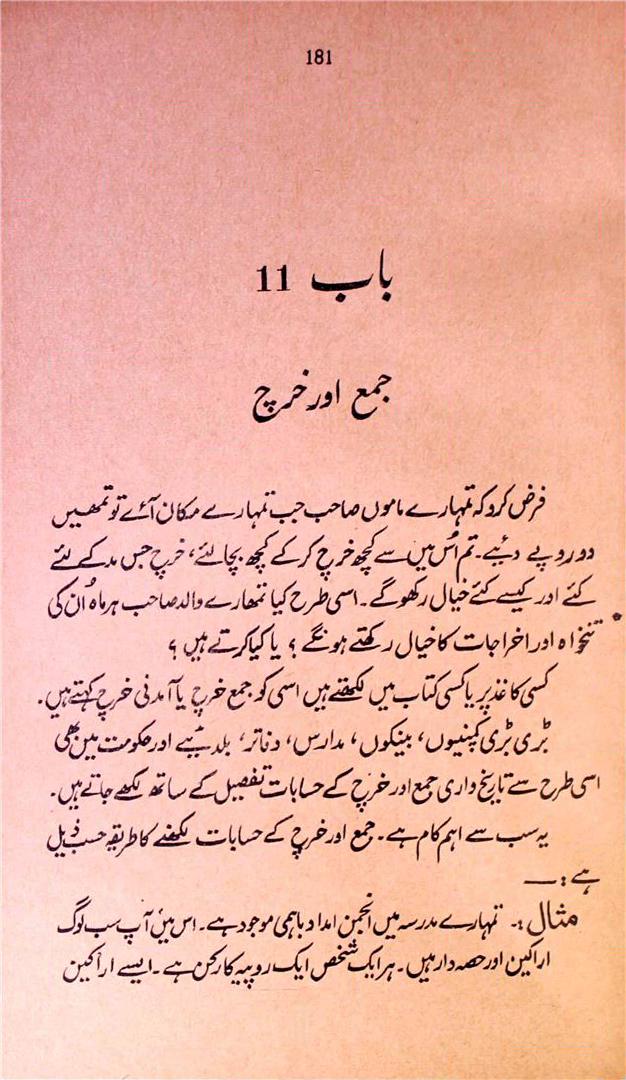 181
باب 11
جمع اور خرچ
فرض کرو کہ تمہارے ماموں صاحب جب تمہارے مکان آئے تو تمھیں
دو روپے دئیے۔ تم اُس میں سے کچھ خرچ کرکے کچھ بچالئے، خرچ جس مد کے لئے
کئے اور کیسے کئے خیال رکھوگے۔ اسی طرح کیا تمھارے والد صاحب ہر ماہ اُن کی
تنخواہ اور اخراجات کا خیال رکھتے ہونگے؟ یا کیا کرتے ہیں؟
کسی کاغذ پر یا کسی کتاب میں لکھتے ہیں اسی کو جمع خرچ یا آمدنی خرچ کہتے ہیں۔
بڑی بڑی کمپنیوں، بینکوں، مدارس، دفاتر، بلدئیے اور حکومت میں بھی
اسی طرح سے تاریخ واری جمع اور خرچ کے حسابات تفصیل کے ساتھ لکھے جاتے ہیں۔
یہ سب سے اہم کام ہے۔ جمع اور خرچ کے حسابات لکھنے کا طریقہ حسب ذیل
ہے:۔
مثال:۔ تمہارے مدرسہ میں انجمن امداد باہمی موجود ہے۔ اس میں آپ سب لوگ
اراکین اور حصہ دار ہیں۔ ہر ایک شخص ایک روپیہ کا رکن ہے۔ ایسے اراکین